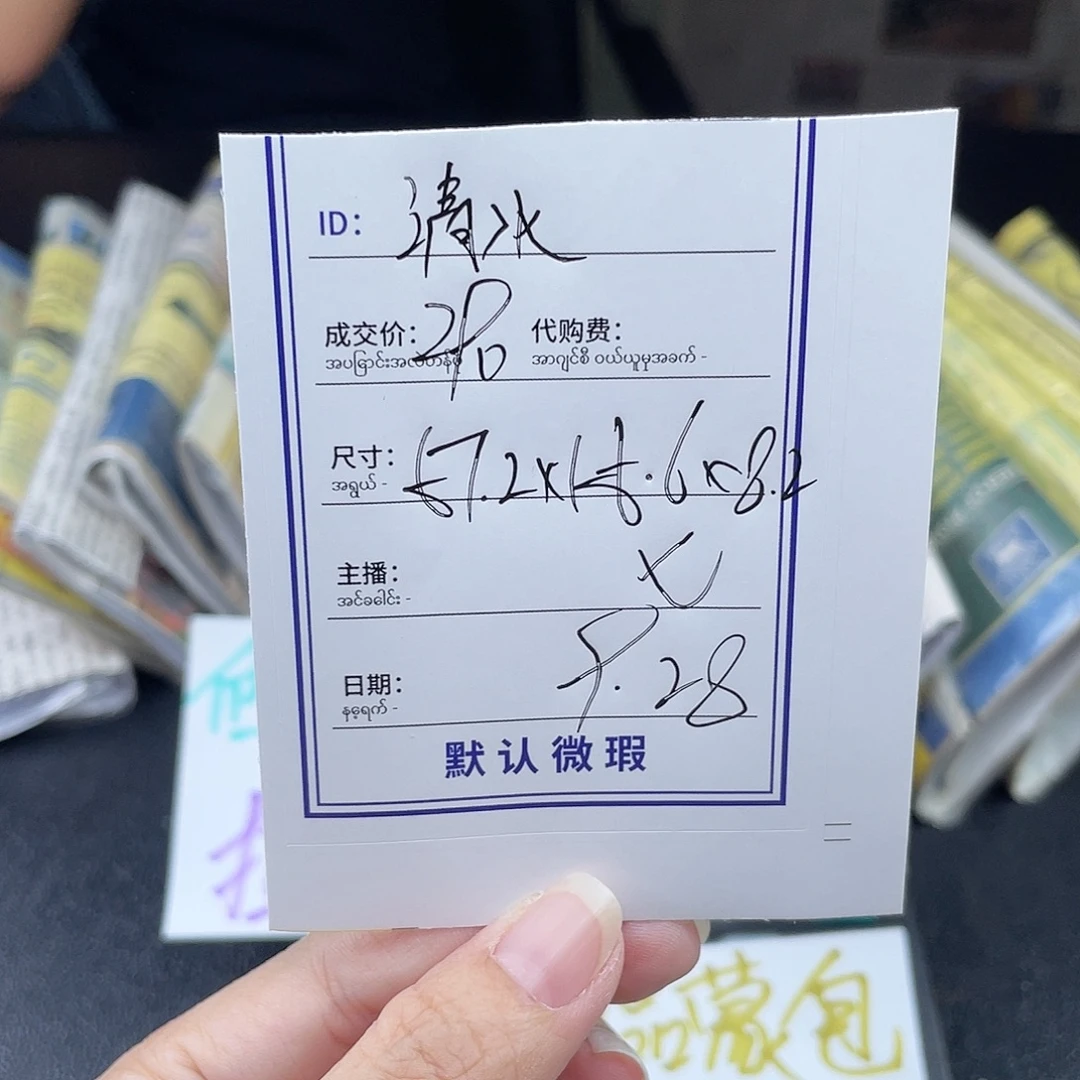 ID: 清冰
成交价: 代购费:
အပြောင်းအလဲတန်ဖိုး အာဂျင်စီ ဝယ်ယူမှုအခက် -
尺寸: 57.2x15.6x8.2
အရွယ် -
主播: 七
အင်ခေါင်း -
日期: 9.28
နေ့ရက် -
默认微瑕
品蒙包